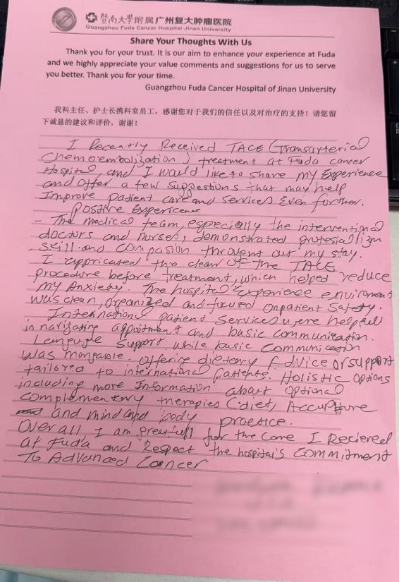 暨南大学附属广州复大肿瘤医院
Guangzhou Fuda Cancer Hospital Jinan University
Share Your Thoughts With Us
Thank you for your trust. It is our aim to enhance your experience at Fuda
and we highly appreciate your valuable comments and suggestions for us to serve
you better. Thank you for your time.
Guangzhou Fuda Cancer Hospital of Jinan University
我科主任、护士长携科室员工，感谢您对于我们的信任以及对治疗的支持！请您留
下诚恳的建议和评价，谢谢！
I Recently Received TACE (Transarterial
Chemoembolization) treatment at Fuda cancer
Hospital, and I would like to share my Experience
and offer a few suggestions that may help
Improve patient care and services Even further.
Positive Experience
The medical team, especially the interventional
doctors and nurses, demonstrated
skill and compasion throughout my stay.
I the clear of the TACE
procedure before treatment, which helped reduce
my Anxiety. The hospital's Experience enviroment
was clean, organized and focused on patient Safety.
International patient Services were helpful
in navigating appointment and basic communication.
Support while basic communication
was . Offering dietary Advice or support
tailored to international patients. Holistic options
including more Information about optional
complementery therapies (diet,
and mind and body practice.
Overall I am for the care I Recieved
at Fuda and Respect the hospital's commitment
To Advanced Cancer